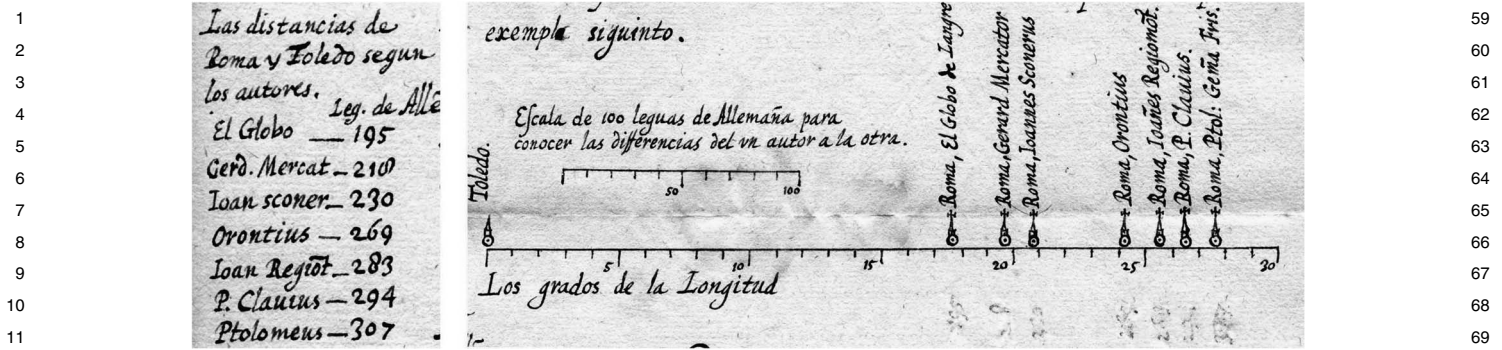 1
2
3
4
5
6
7
8
9
10
11
Las distancias de
Roma y Toledo segun
los autores.
Leg. de Alle
El Globo — 195
Gerd. Mercat — 210
Ioan sconer — 230
Orontius — 269
Ioan Regiōt — 283
P. Clauius — 294
Ptolomeus — 307
exemplo siguinto.
Escala de 100 leguas de Allemaña para
conocer las differencias del vn autor a la otra.
50 100
Toledo.
Roma, El Globo de Langre
Roma, Gerard Mercator
Roma, Ioannes Sconerus
Roma, Orontius
Roma, Ioañes Regiomōt.
Roma, P. Clauius.
Roma, Ptol: Gem̄a Fris.
5 10 15 20 25 30
Los grados de la Longitud
59
60
61
62
63
64
65
66
67
68
69